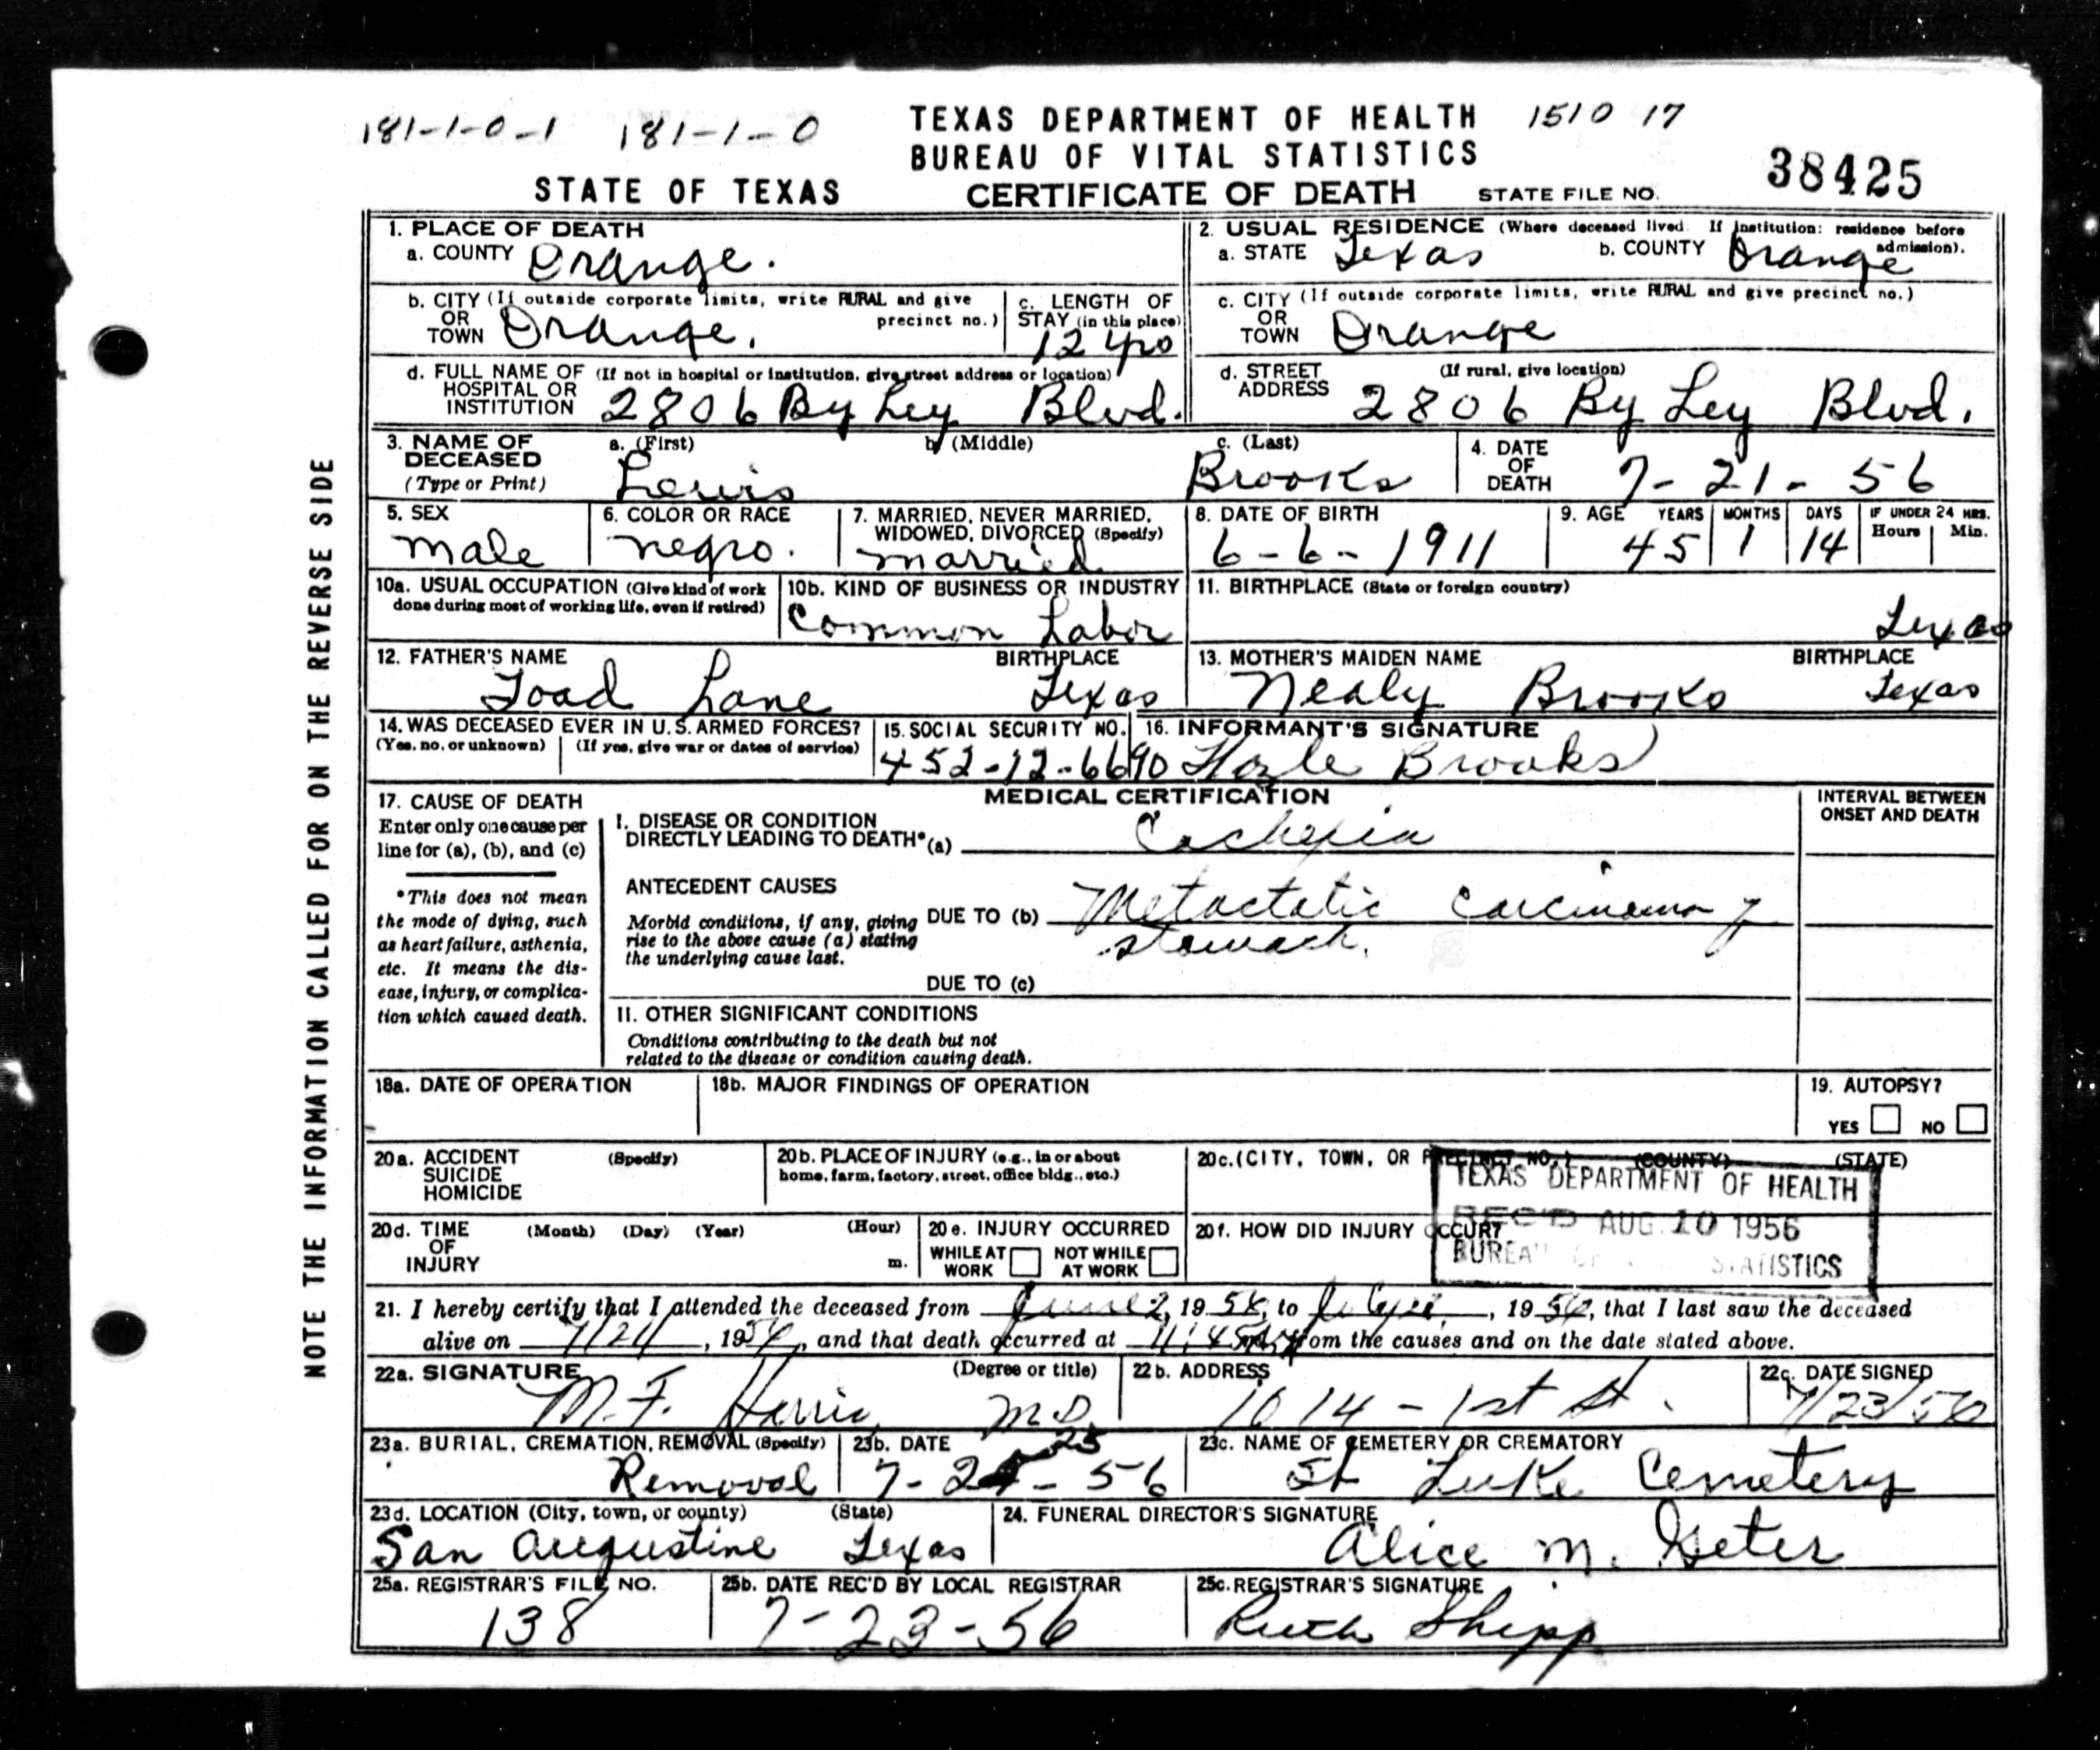 181-1-0-1 181-1-0 TEXAS DEPARTMENT OF HEALTH 1510 17
BUREAU OF VITAL STATISTICS
STATE OF TEXAS CERTIFICATE OF DEATH STATE FILE NO. 38425
NOTE THE INFORMATION CALLED FOR ON THE REVERSE SIDE
1. PLACE OF DEATH
a. COUNTY Orange.
2. USUAL RESIDENCE (Where deceased lived. If institution: residence before admission).
a. STATE Texas b. COUNTY Orange
b. CITY (If outside corporate limits, write RURAL and give precinct no.)
OR TOWN Orange.
c. LENGTH OF STAY (in this place) 12 yrs
c. CITY (If outside corporate limits, write RURAL and give precinct no.)
OR TOWN Orange
d. FULL NAME OF (If not in hospital or institution, give street address or location)
HOSPITAL OR INSTITUTION 2806 By Ley Blvd.
d. STREET ADDRESS (If rural, give location)
2806 By Ley Blvd.
3. NAME OF DECEASED (Type or Print)
a. (First) b. (Middle) c. (Last)
Lewis Brooks
4. DATE OF DEATH 7-21-56
5. SEX
male
6. COLOR OR RACE
negro.
7. MARRIED, NEVER MARRIED, WIDOWED, DIVORCED (Specify)
married
8. DATE OF BIRTH
6-6-1911
9. AGE YEARS MONTHS DAYS IF UNDER 24 HRS. Hours Min.
45 1 14
10a. USUAL OCCUPATION (Give kind of work done during most of working life, even if retired)
10b. KIND OF BUSINESS OR INDUSTRY
Common Labor
11. BIRTHPLACE (State or foreign country)
Texas
12. FATHER'S NAME BIRTHPLACE
Toad Lane Texas
13. MOTHER'S MAIDEN NAME BIRTHPLACE
Nealy Brooks Texas
14. WAS DECEASED EVER IN U.S. ARMED FORCES?
(Yes, no, or unknown) (If yes, give war or dates of service)
15. SOCIAL SECURITY NO.
452-12-6690
16. INFORMANT'S SIGNATURE
Brooks
17. CAUSE OF DEATH
Enter only one cause per
line for (a), (b), and (c)
*This does not mean
the mode of dying, such
as heart failure, asthenia,
etc. It means the dis-
ease, injury, or complica-
tion which caused death.
MEDICAL CERTIFICATION
INTERVAL BETWEEN
ONSET AND DEATH
I. DISEASE OR CONDITION
DIRECTLY LEADING TO DEATH* (a) Cachexia
ANTECEDENT CAUSES
Morbid conditions, if any, giving
rise to the above cause (a) stating
the underlying cause last.
DUE TO (b) Metastatic Carcinoma of
stomach.
DUE TO (c)
II. OTHER SIGNIFICANT CONDITIONS
Conditions contributing to the death but not
related to the disease or condition causing death.
18a. DATE OF OPERATION
18b. MAJOR FINDINGS OF OPERATION
19. AUTOPSY?
YES NO
20a. ACCIDENT (Specify)
SUICIDE
HOMICIDE
20b. PLACE OF INJURY (e.g., in or about
home, farm, factory, street, office bldg., etc.)
20c. (CITY, TOWN, OR PRECINCT NO.) (COUNTY) (STATE)
TEXAS DEPARTMENT OF HEALTH
REC'D AUG 10 1956
BUREAU OF STATISTICS
20d. TIME (Month) (Day) (Year) (Hour)
OF
INJURY m.
20e. INJURY OCCURRED
WHILE AT WORK NOT WHILE AT WORK
20f. HOW DID INJURY OCCUR?
21. I hereby certify that I attended the deceased from June 2, 1956, to , 1956, that I last saw the deceased
alive on 7/21, 1956, and that death occurred at 11:45 m., from the causes and on the date stated above.
22a. SIGNATURE (Degree or title)
M. F. Harris M.D.
22b. ADDRESS
1014 - 1st St.
22c. DATE SIGNED
7/23/56
23a. BURIAL, CREMATION, REMOVAL (Specify)
Removal
23b. DATE
25
7-2 -56
23c. NAME OF CEMETERY OR CREMATORY
St Luke Cemetery
23d. LOCATION (City, town, or county) (State)
San Augustine Texas
24. FUNERAL DIRECTOR'S SIGNATURE
Alice M. Geter
25a. REGISTRAR'S FILE NO.
138
25b. DATE REC'D BY LOCAL REGISTRAR
7-23-56
25c. REGISTRAR'S SIGNATURE
Ruth Shipp